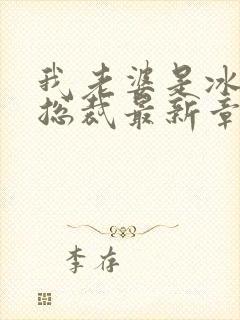 我老婆是冰
总裁最新章
李存